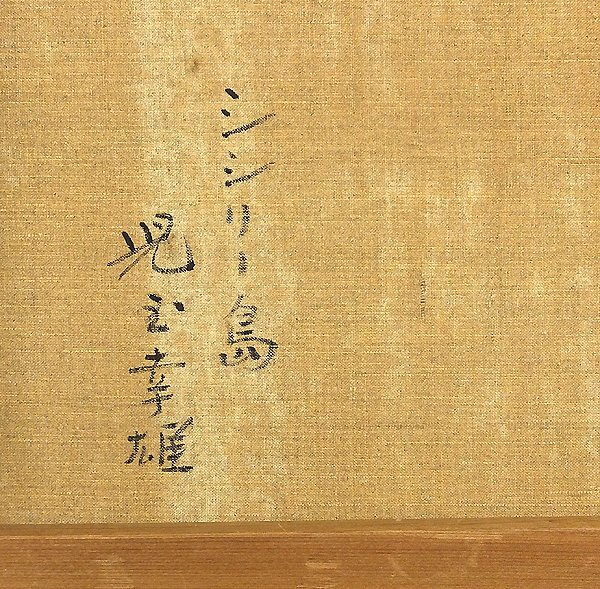 シシリー島
児玉幸雄